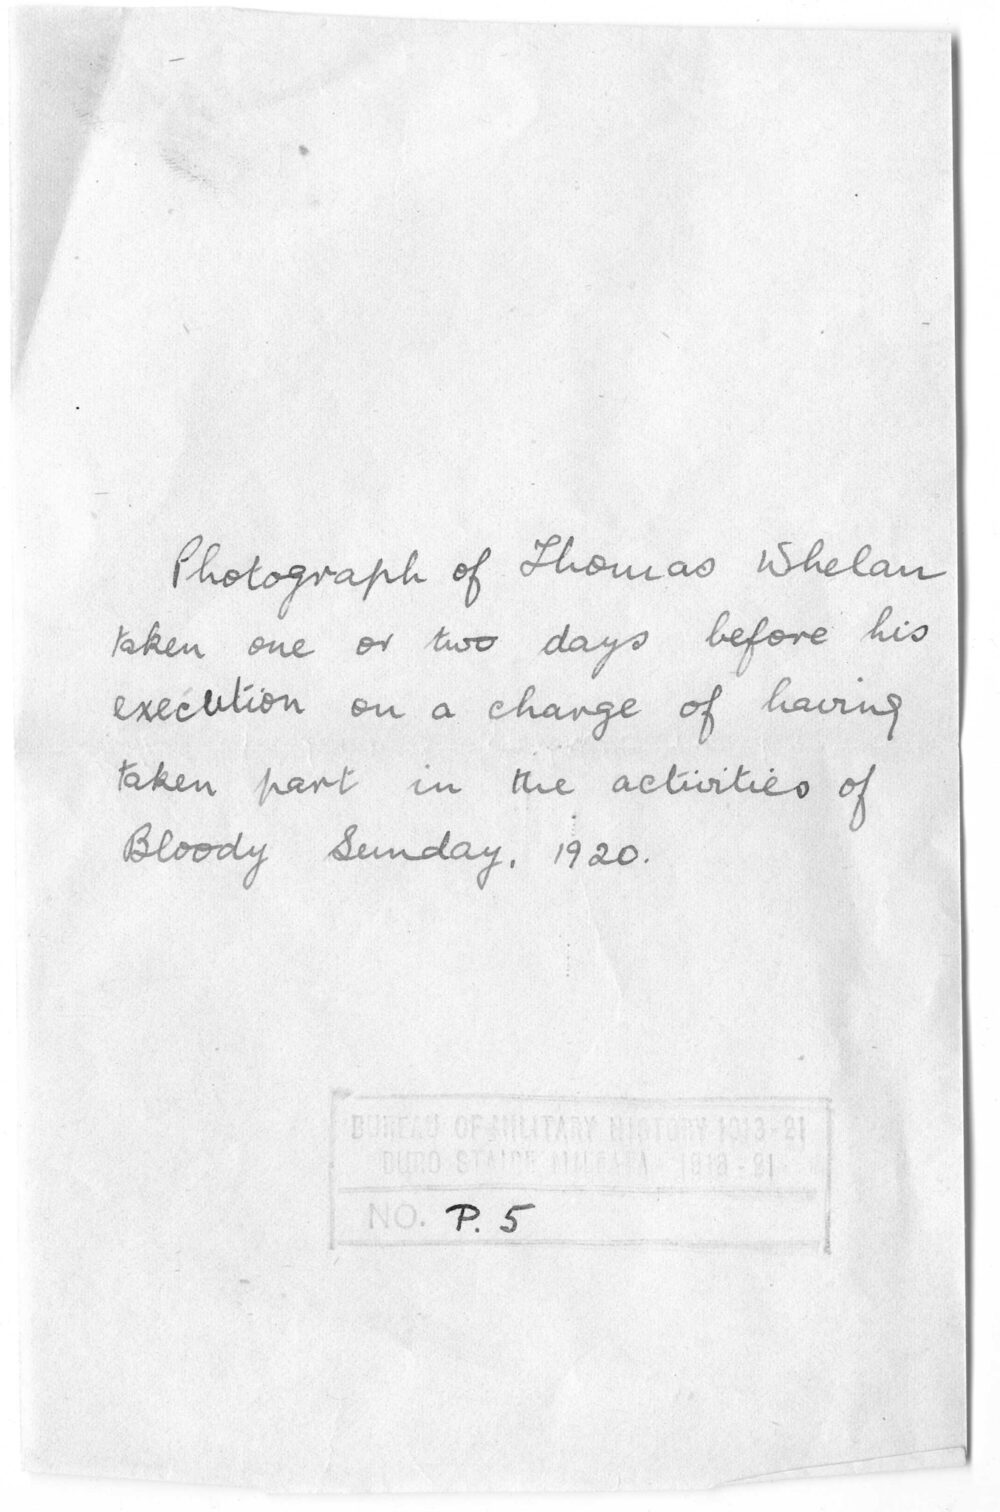 Photograph of Thomas Whelan
taken one or two days before his
execution on a charge of having
taken part in the activities of
Bloody Sunday, 1920.
BUREAU OF MILITARY HISTORY 1913-21
BURO STAIRE MILEATA 1913-21
NO. P. 5